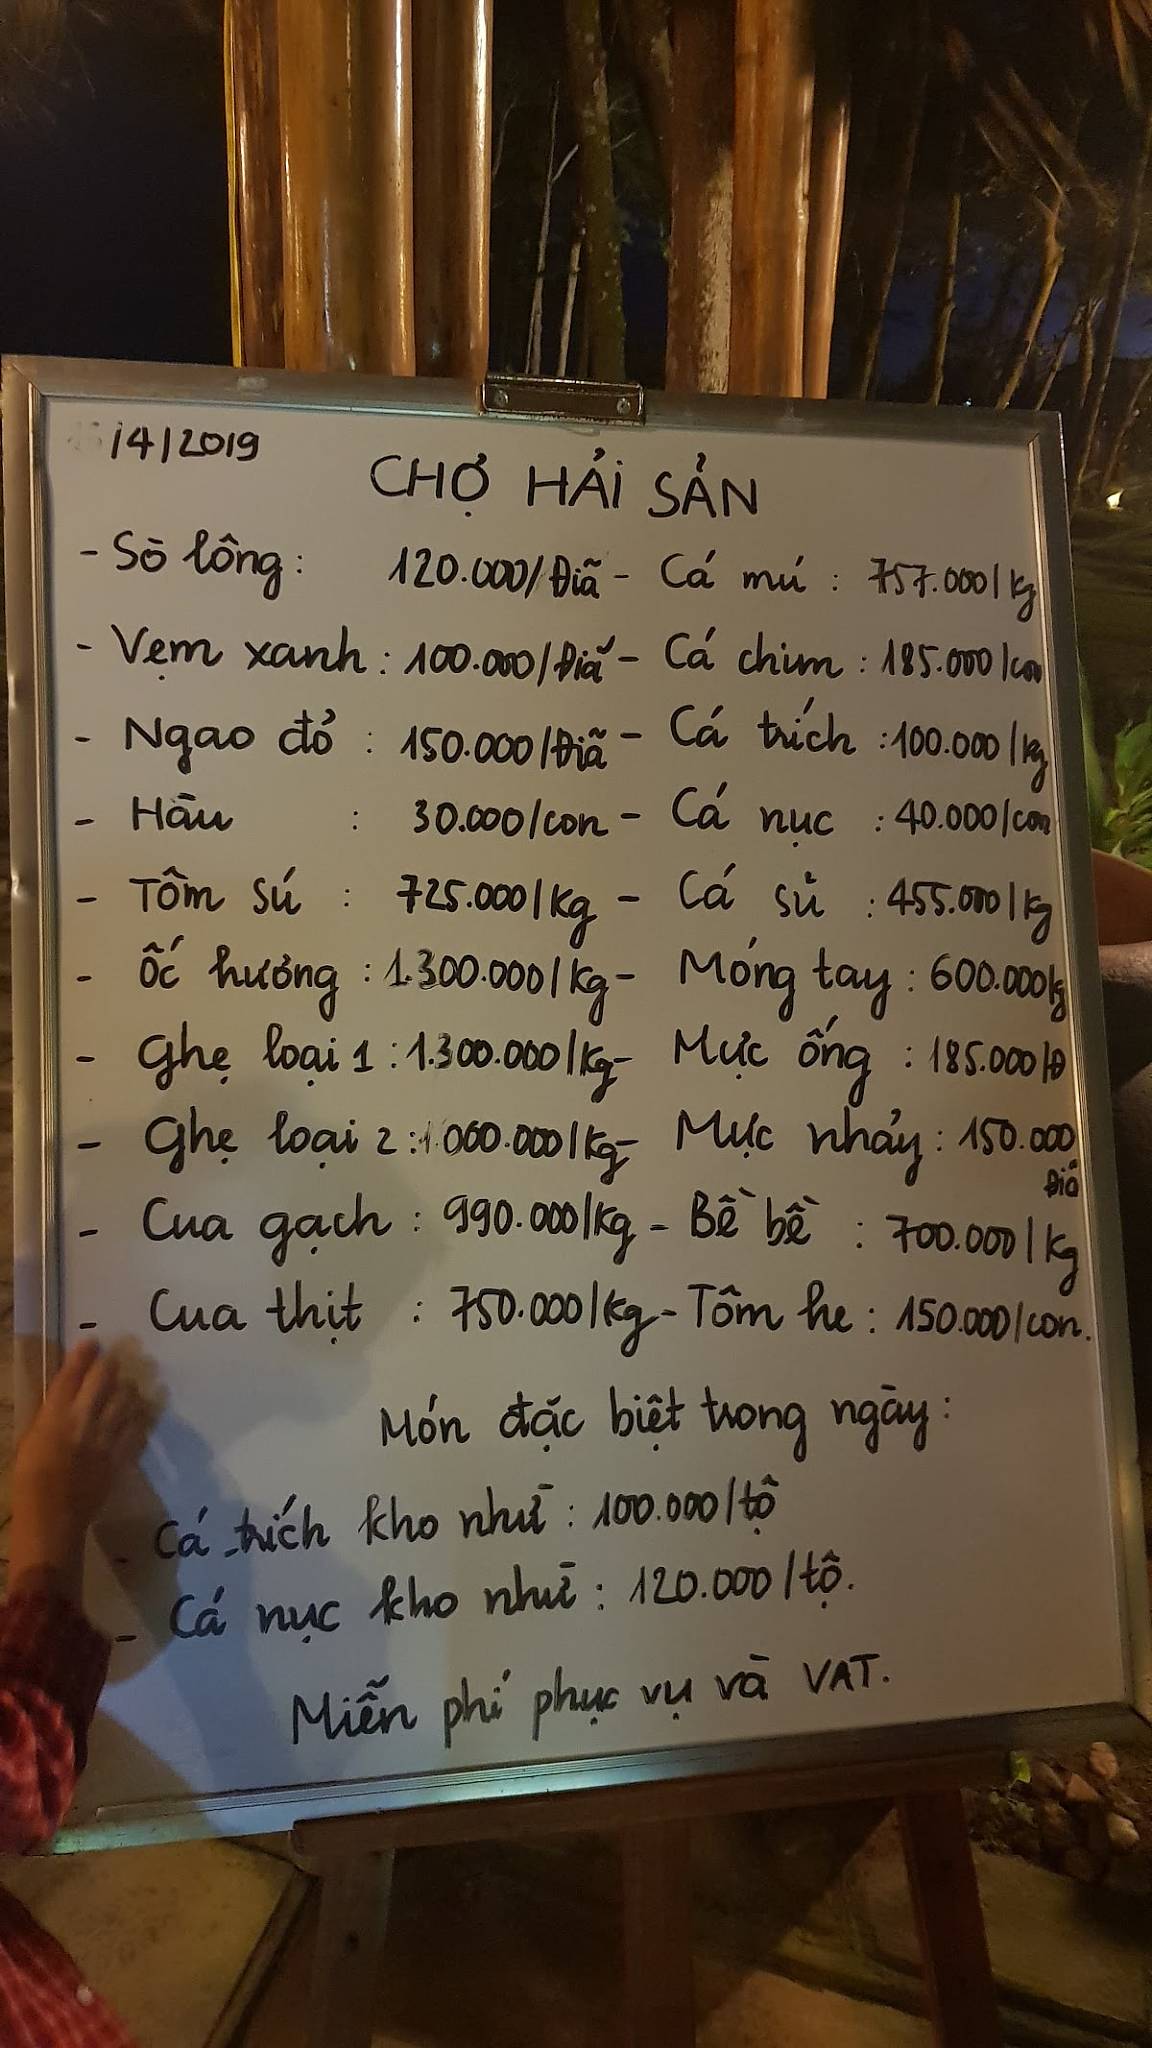 /4/2019
CHỢ HẢI SẢN
- Sò lông: 120.000/Đĩa - Cá mú : 757.000/kg
- Vẹm xanh : 100.000/Đĩa - Cá chim : 185.000/con
- Ngao đỏ : 150.000/Đĩa - Cá trích : 100.000/kg
- Hàu : 30.000/con - Cá nục : 40.000/con
- Tôm sú : 725.000/kg - Cá sủ : 455.000/kg
- Ốc hương : 1.300.000/kg - Móng tay : 600.000kg
- Ghẹ loại 1 : 1.300.000/kg - Mực ống : 185.000/Đ
- Ghẹ loại 2 : 1.000.000/kg - Mực nháy : 150.000
Đĩa
- Cua gạch : 990.000/kg - Bề bề : 700.000/kg
- Cua thịt : 750.000/kg - Tôm he : 150.000/con.
Món đặc biệt trong ngày :
- Cá trích kho như : 100.000/tộ
- Cá nục kho như : 120.000/tộ.
Miễn phí phục vụ và VAT.